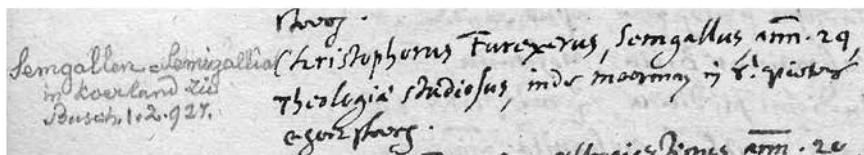 steeg.
Semgallen = Semigallia
in Koerland zie
Busch. 1. 2. 927.
Christophorus Furexerus, Semgallus, ann. 29,
Theologiæ studiosus, in de meerman in S. pieters
choorsteeg.
ann. 20